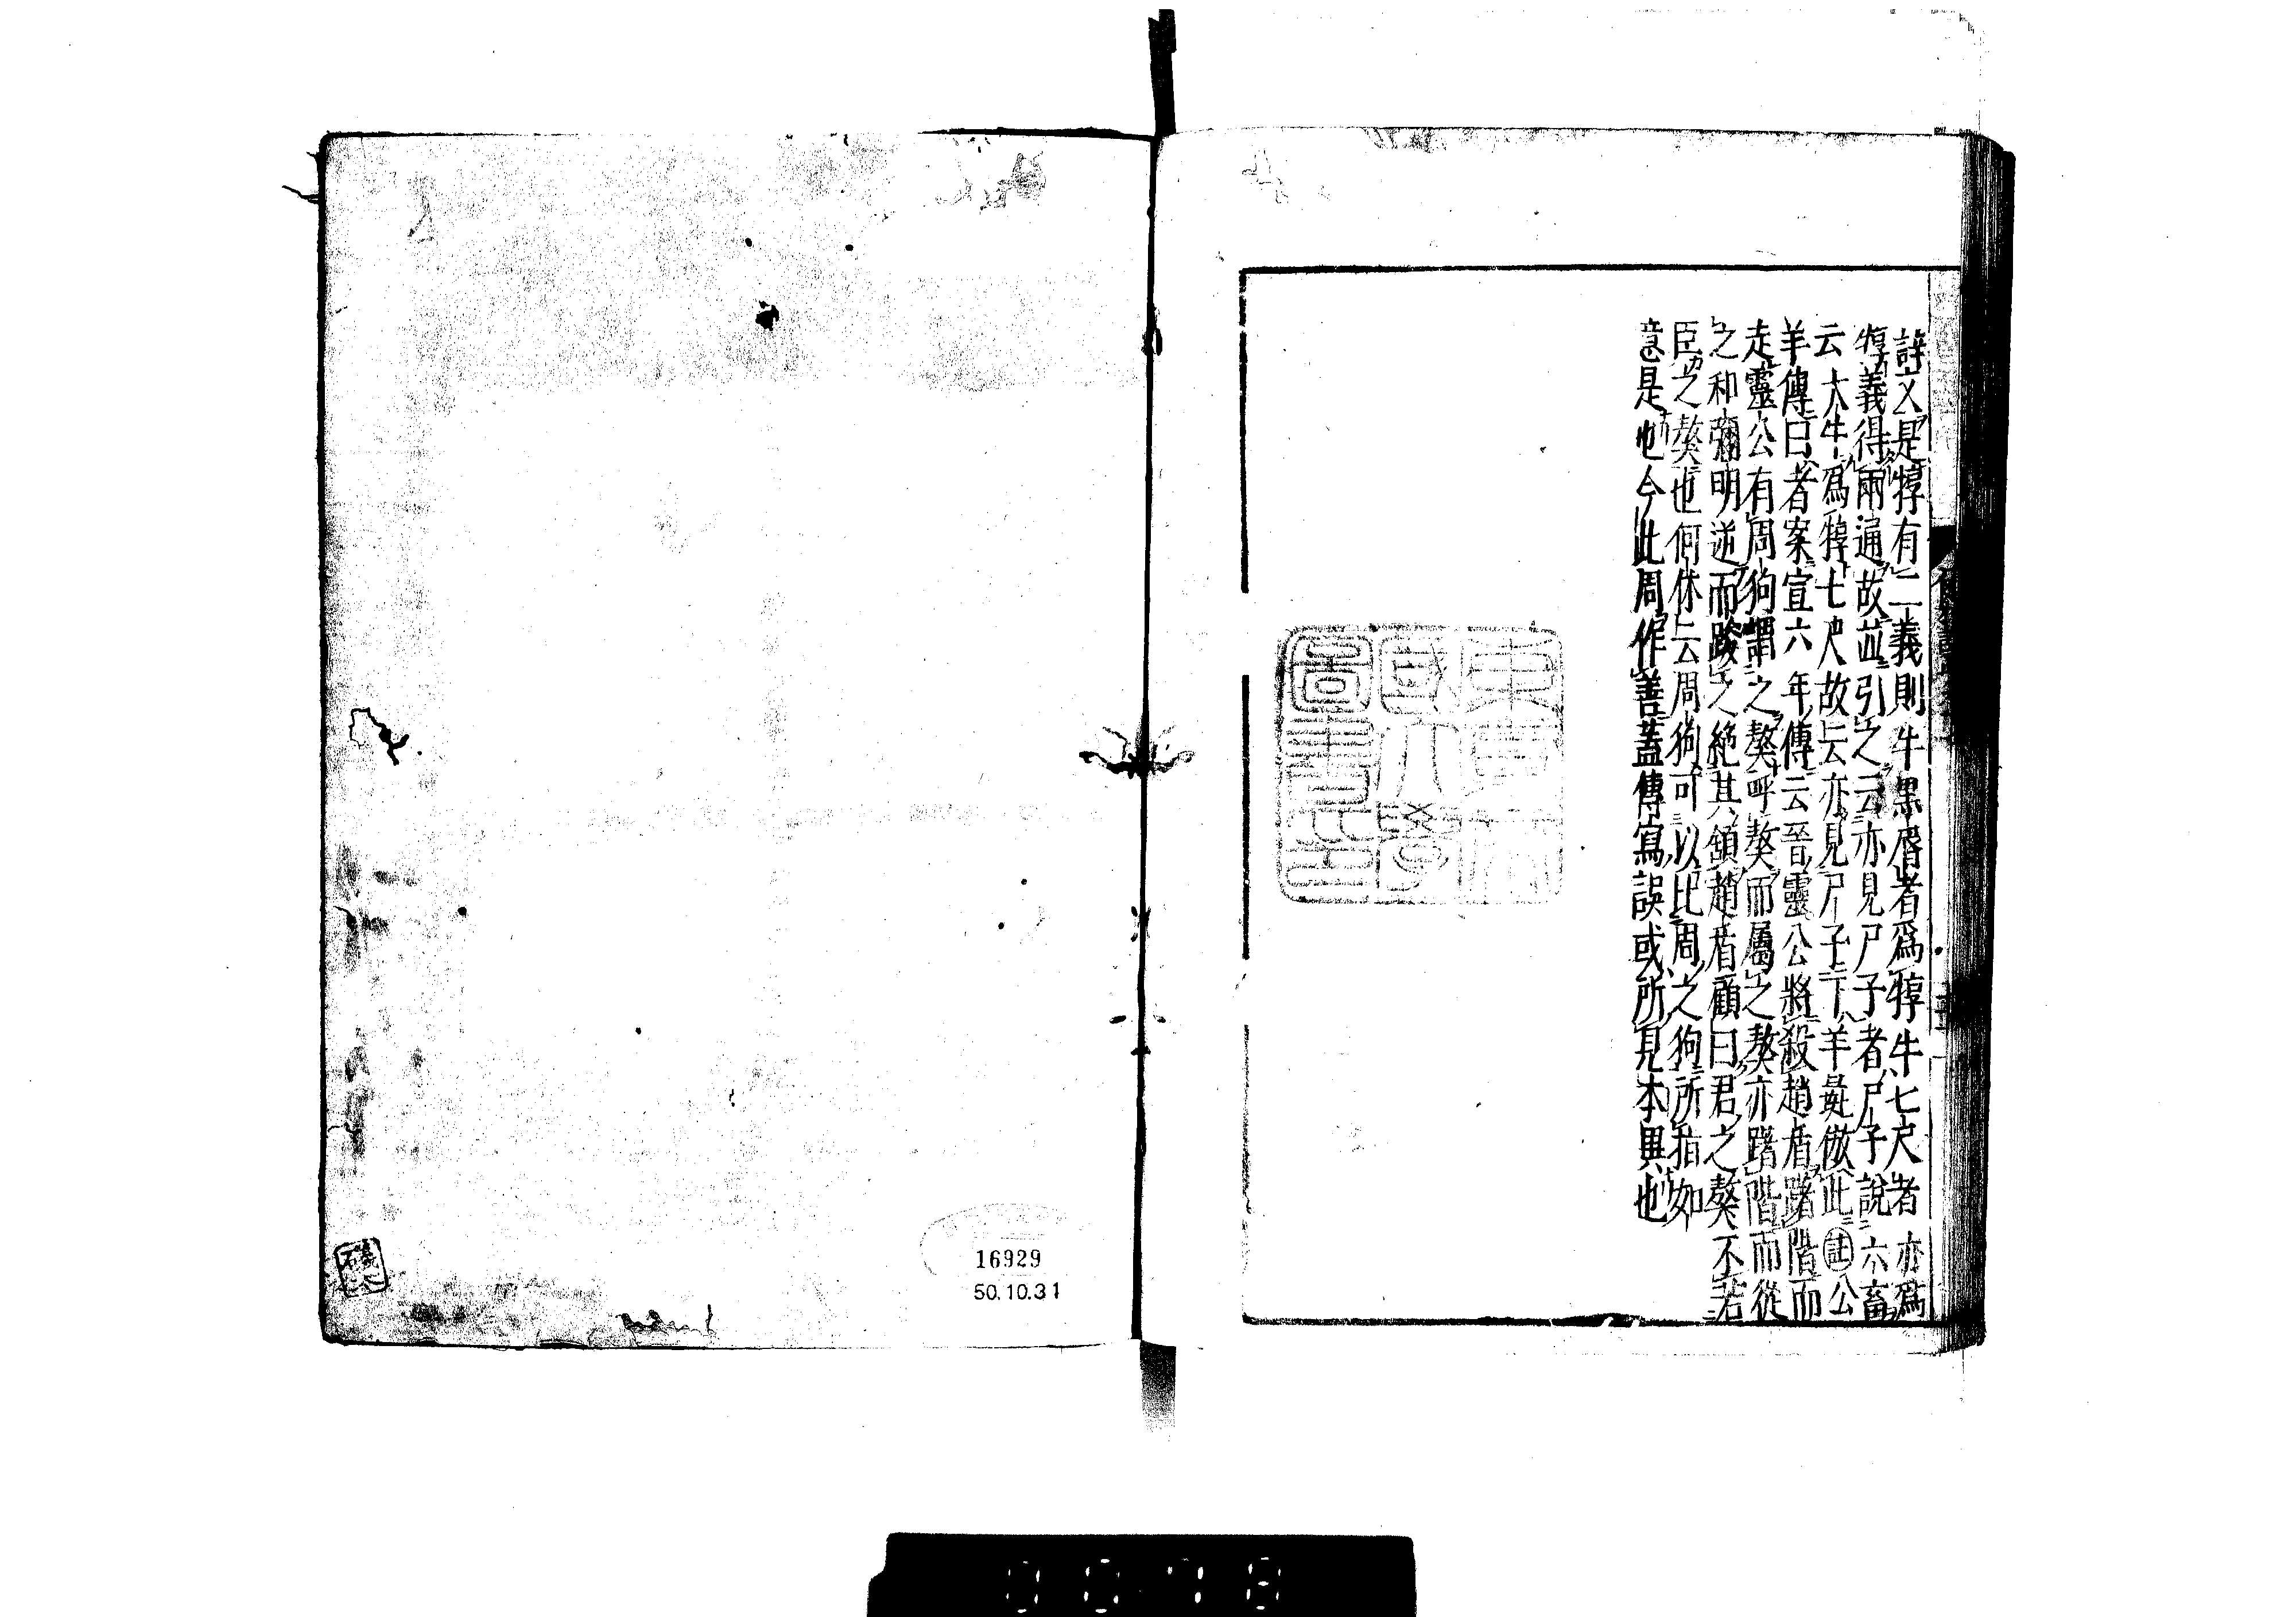 辞又是犉有二義則牛黒脣者爲犉牛七尺者亦爲
犉義得兩通故並引之云亦見尸子者尸子說六畜
云大牛爲犉七尺故云亦見尸子下羊彘倣此註公
羊傳曰者案宣六年傳云晉靈公將殺趙盾躇階而
走靈公有周狗謂之獒呼獒而屬之獒亦躇階而從
之和彌明逆而踆之絶其頷趙盾顧曰君之獒不若
臣之獒也何休云周狗可以比周之狗所指如
意是也今此周作善蓋傳寫誤或所見本異也
東京
國大學
圖書之
16929
50.10.31